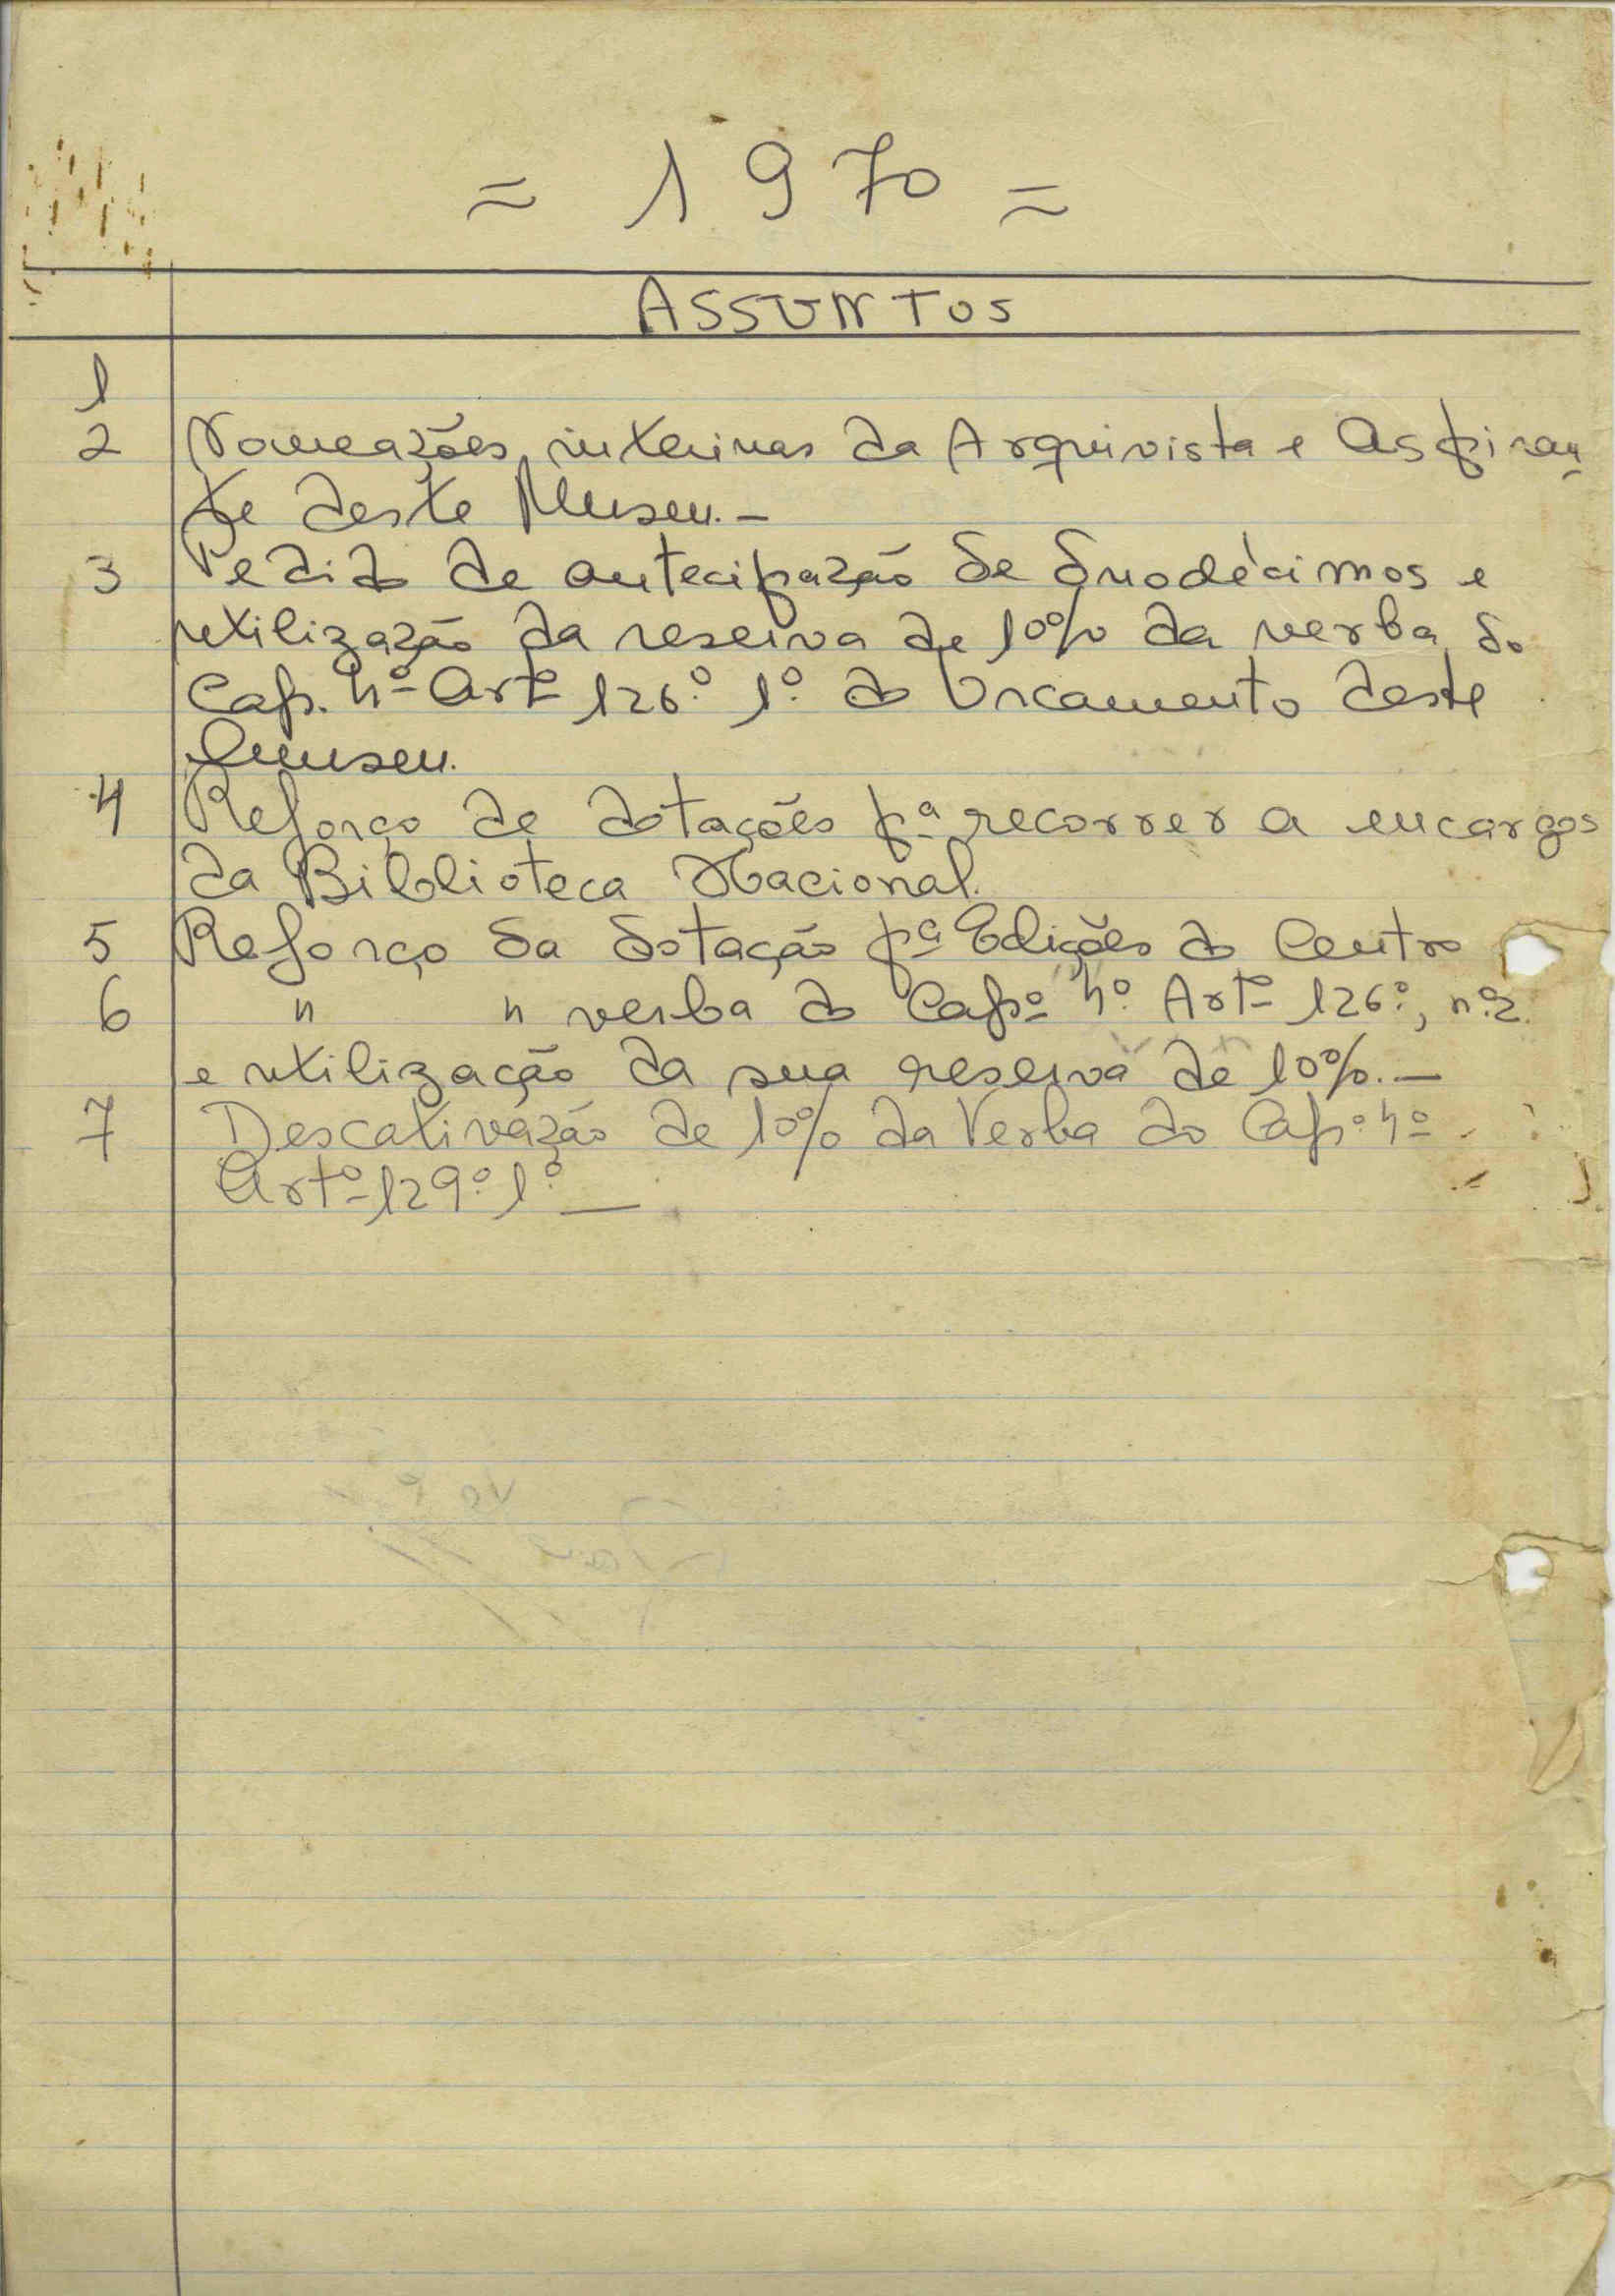 = 1970 =
ASSUNTOS
1
2 Nomeações interinas da Arquivista e Aspiran-
te deste Museu. -
3 Pedido de antecipação de duodécimos e
utilização da reserva de 10% da verba do
Cap. 4º Artº 126º 1º do Orcamento deste
Museu.
4 Reforço de dotações pª recorrer a encargos
da Biblioteca Nacional.
5 Reforço da dotação pª Edições do Centro
6 " " verba do Capº 4º Artº 126º, nº 2.
e utilização da sua reserva de 10%. —
7 Descativação de 10% da Verba do Capº 4º
Artº 129º 1º —